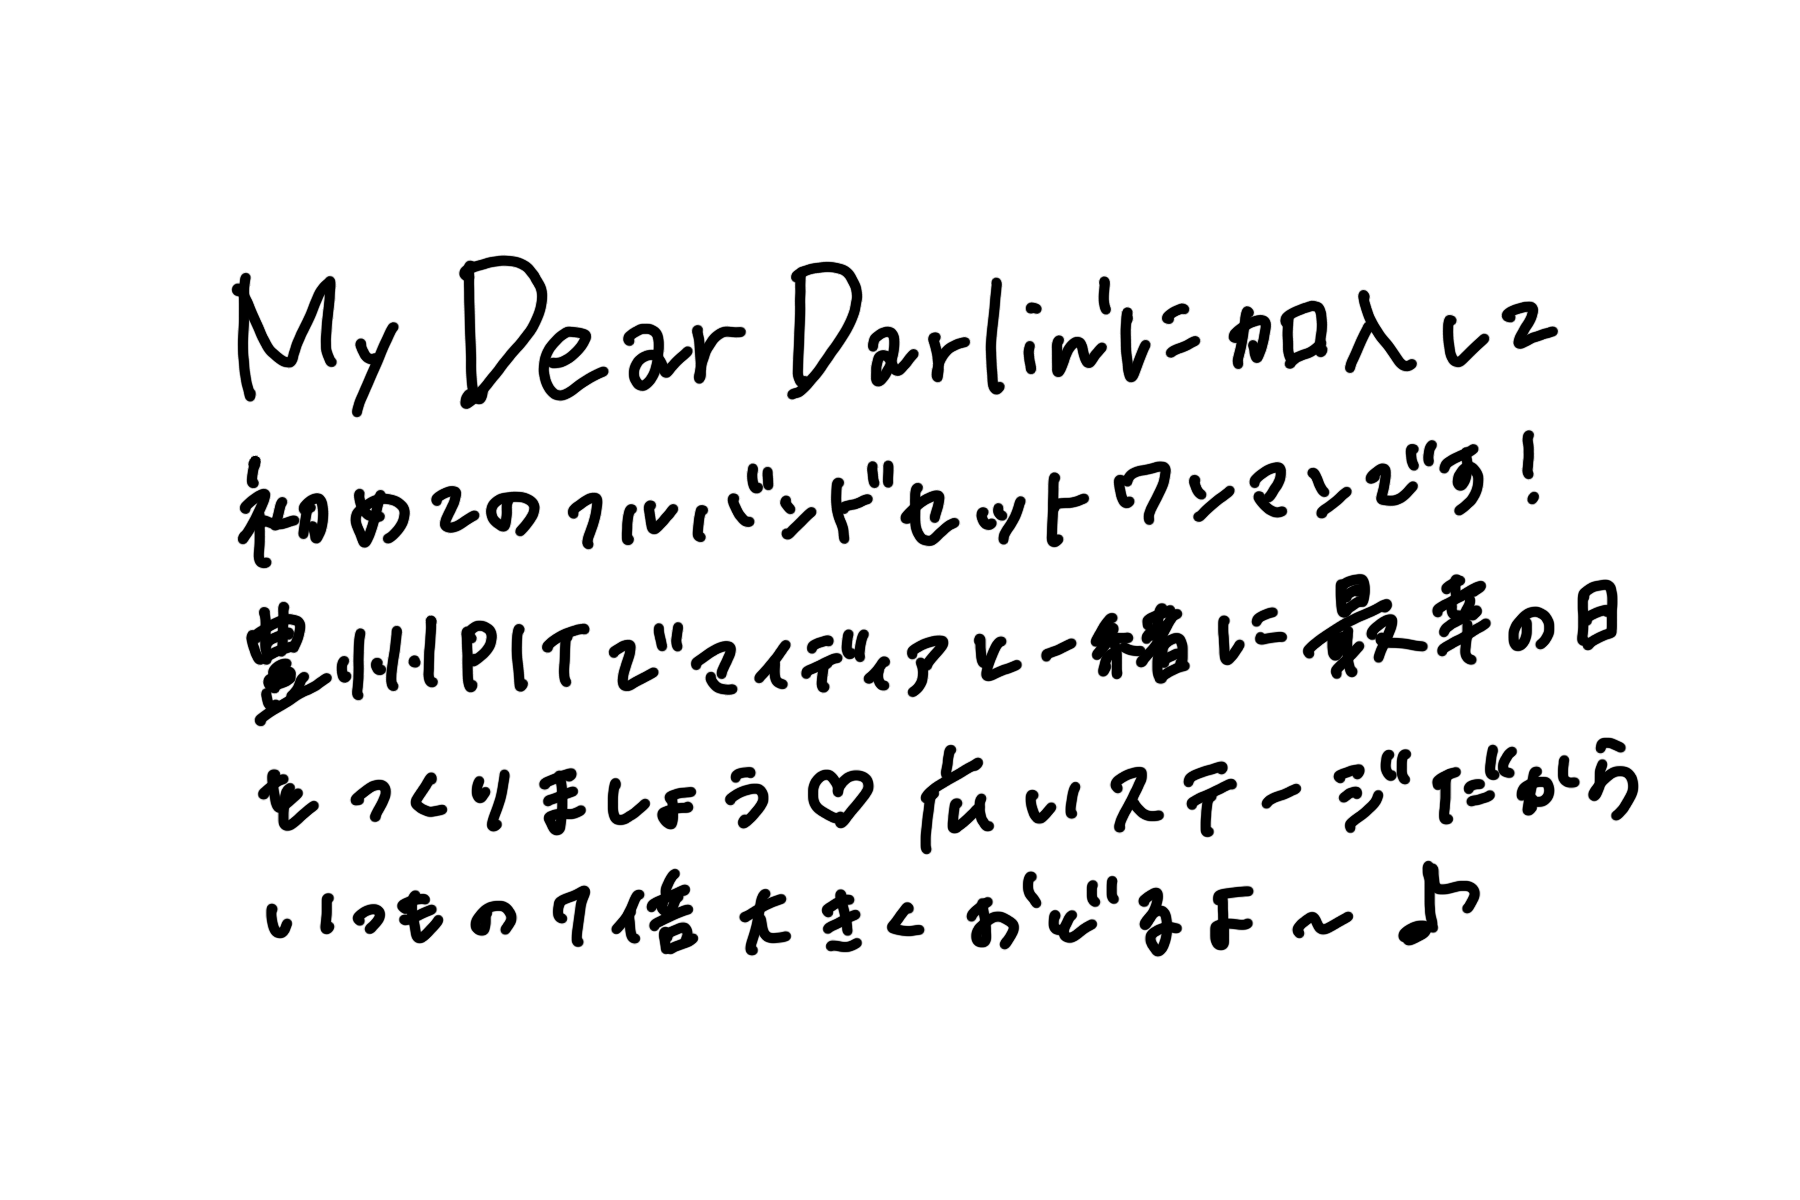 My Dear Darlin'に加入して
初めてのフルバンドセットワンマンです!
豊州PITでマイディアと一緒に最幸の日
をつくりましょう♡ 広いステージだから
いつもの7倍大きくおどるよ〜♪